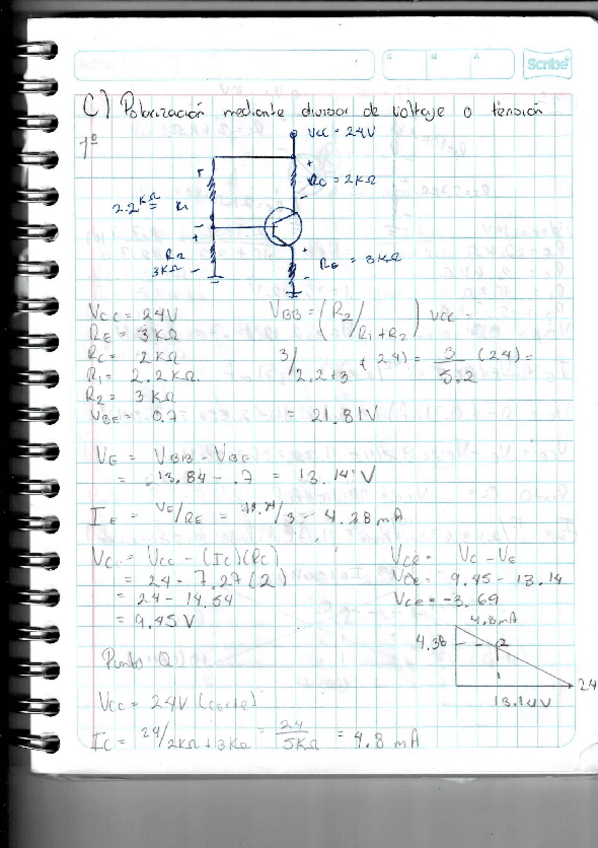 G M A Scribe
C) Polarización mediante divisor de voltaje o tensión
1º
VCC = 24V
RC = 2KΩ
2.2KΩ R1
R2
3KΩ
RE = 3KΩ
VCC = 24V
RE = 3KΩ
RC = 2KΩ
R1 = 2.2KΩ
R2 = 3KΩ
VBE = 0.7
VBB = (R2/R1+R2) VCC =
3/2.2+3 (24) = 3/5.2 (24) =
= 21.81V
VE = VBB - VBE
= 13.84 - .7 = 13.14 V
IE = VE/RE = /3 = 4.38 mA
VC = VCC - (IC)(RC)
= 24 - 7.27(2)
= 24 - 14.54
= 9.45 V
VCE = VC - VE
VCE = 9.45 - 13.14
VCE = -3.69
4.8mA
4.38
24
13.14V
Punto Q
VCC = 24V (corte)
IC = 24/2KΩ+3KΩ = 24/5KΩ = 4.8 mA